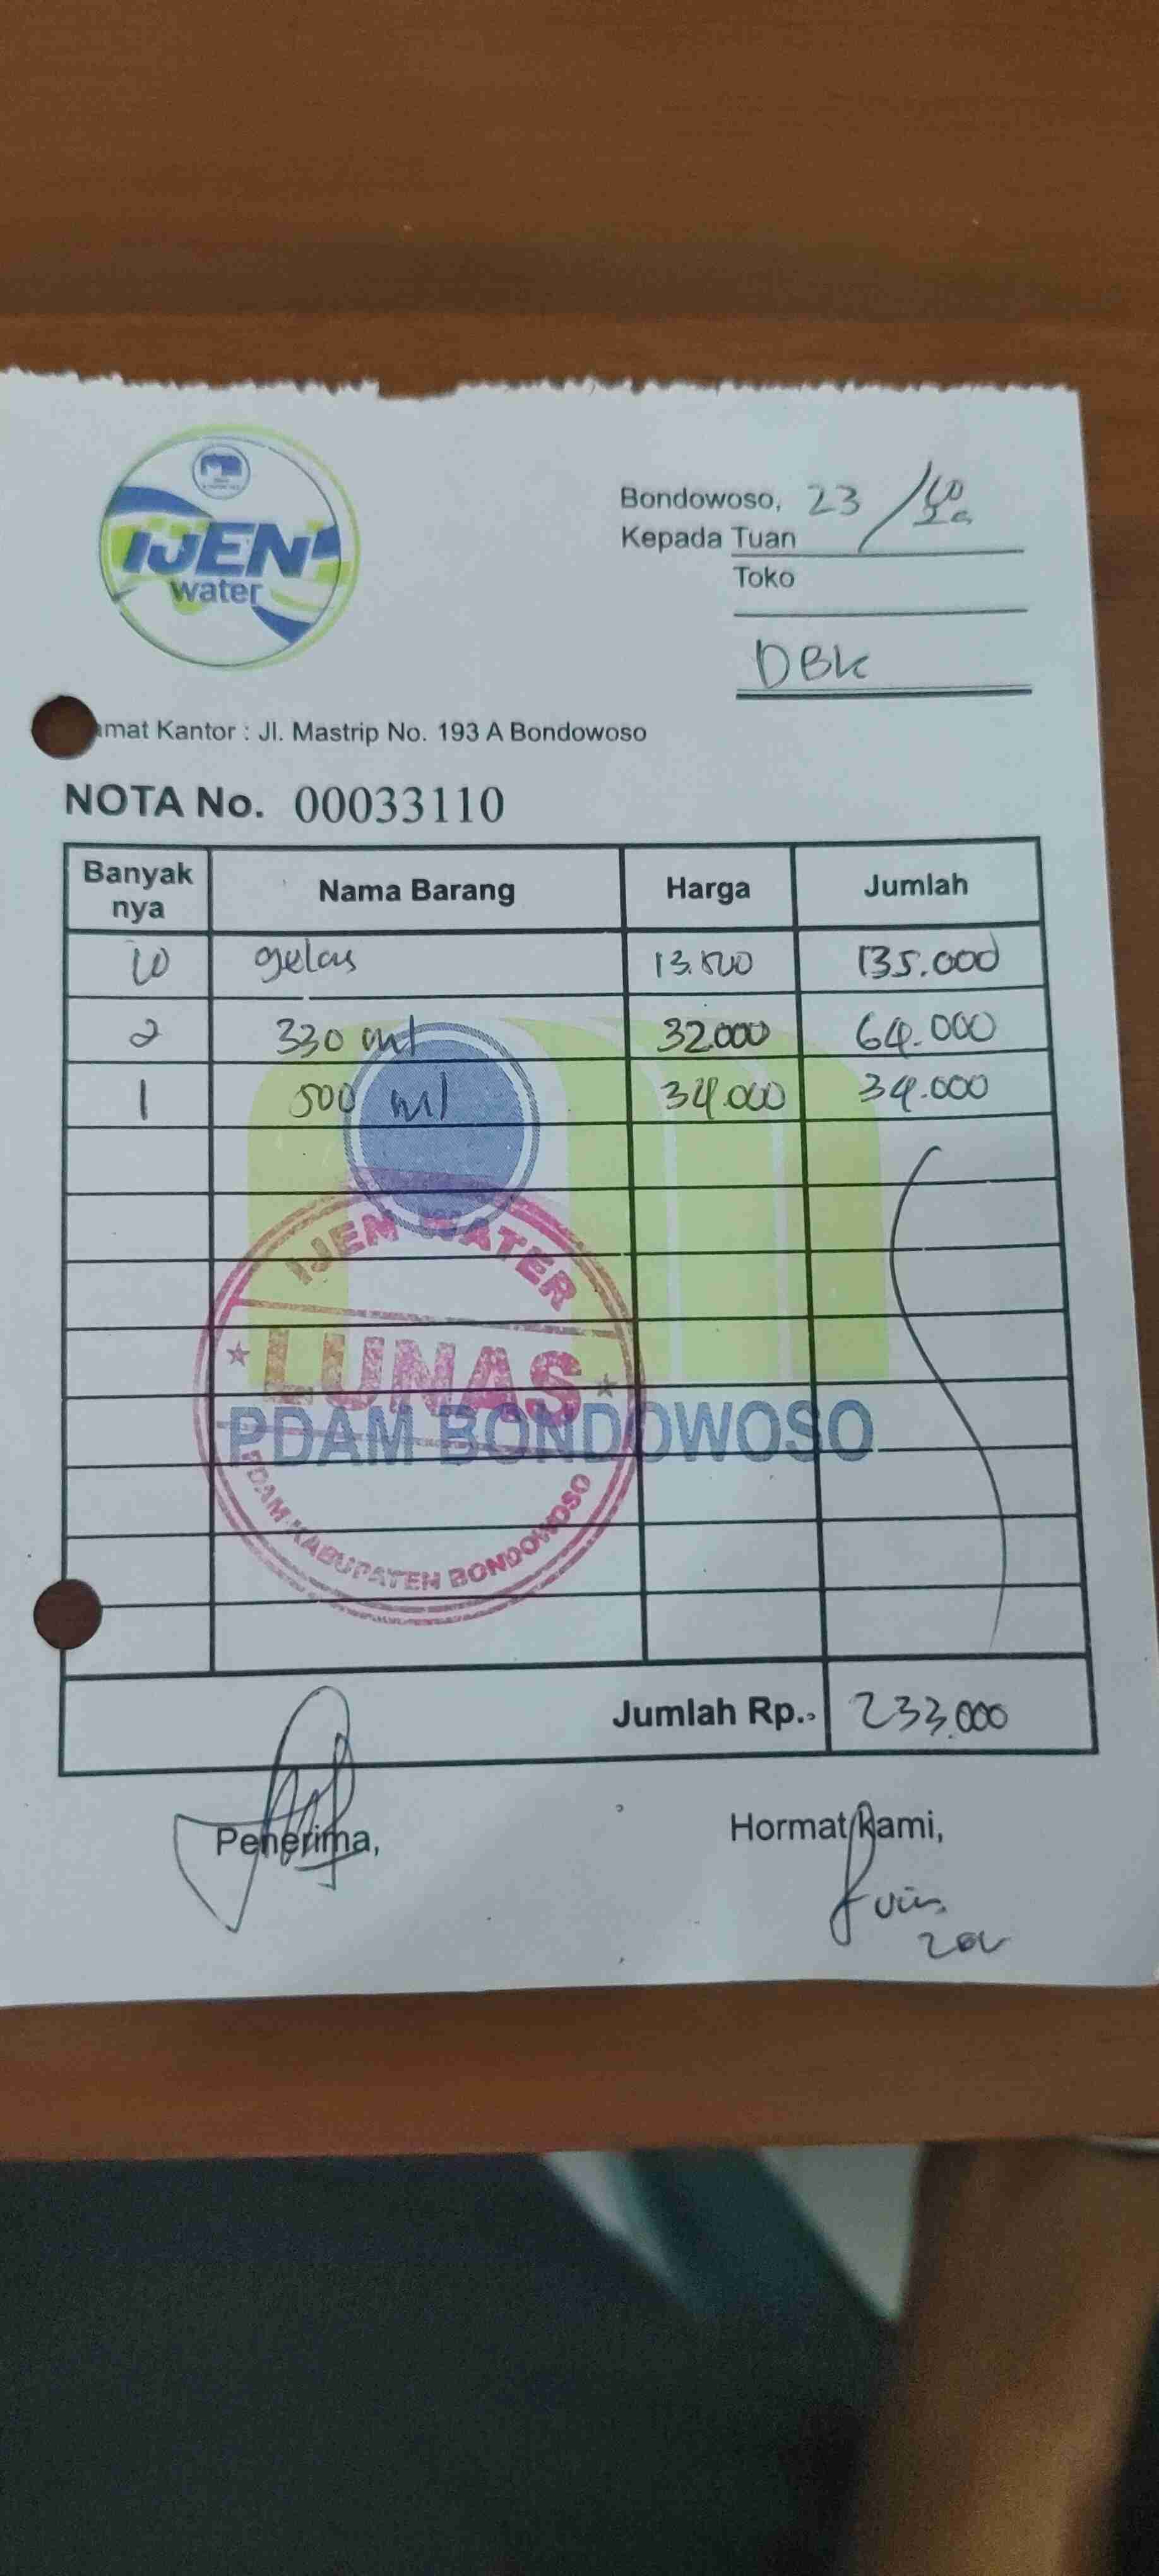 IJEN
water
Bondowoso, 23 / 10
Kepada Tuan
Toko
DBK
mat Kantor : Jl. Mastrip No. 193 A Bondowoso
NOTA No. 00033110
Banyak nya Nama Barang Harga Jumlah
10 gelas 13.500 135.000
2 330 ml 32.000 64.000
1 500 ml 34.000 34.000
IJEN WATER
LUNAS
PDAM BONDOWOSO
PDAM KABUPATEN BONDOWOSO
Jumlah Rp. 233.000
Penerima, Hormat Kami,